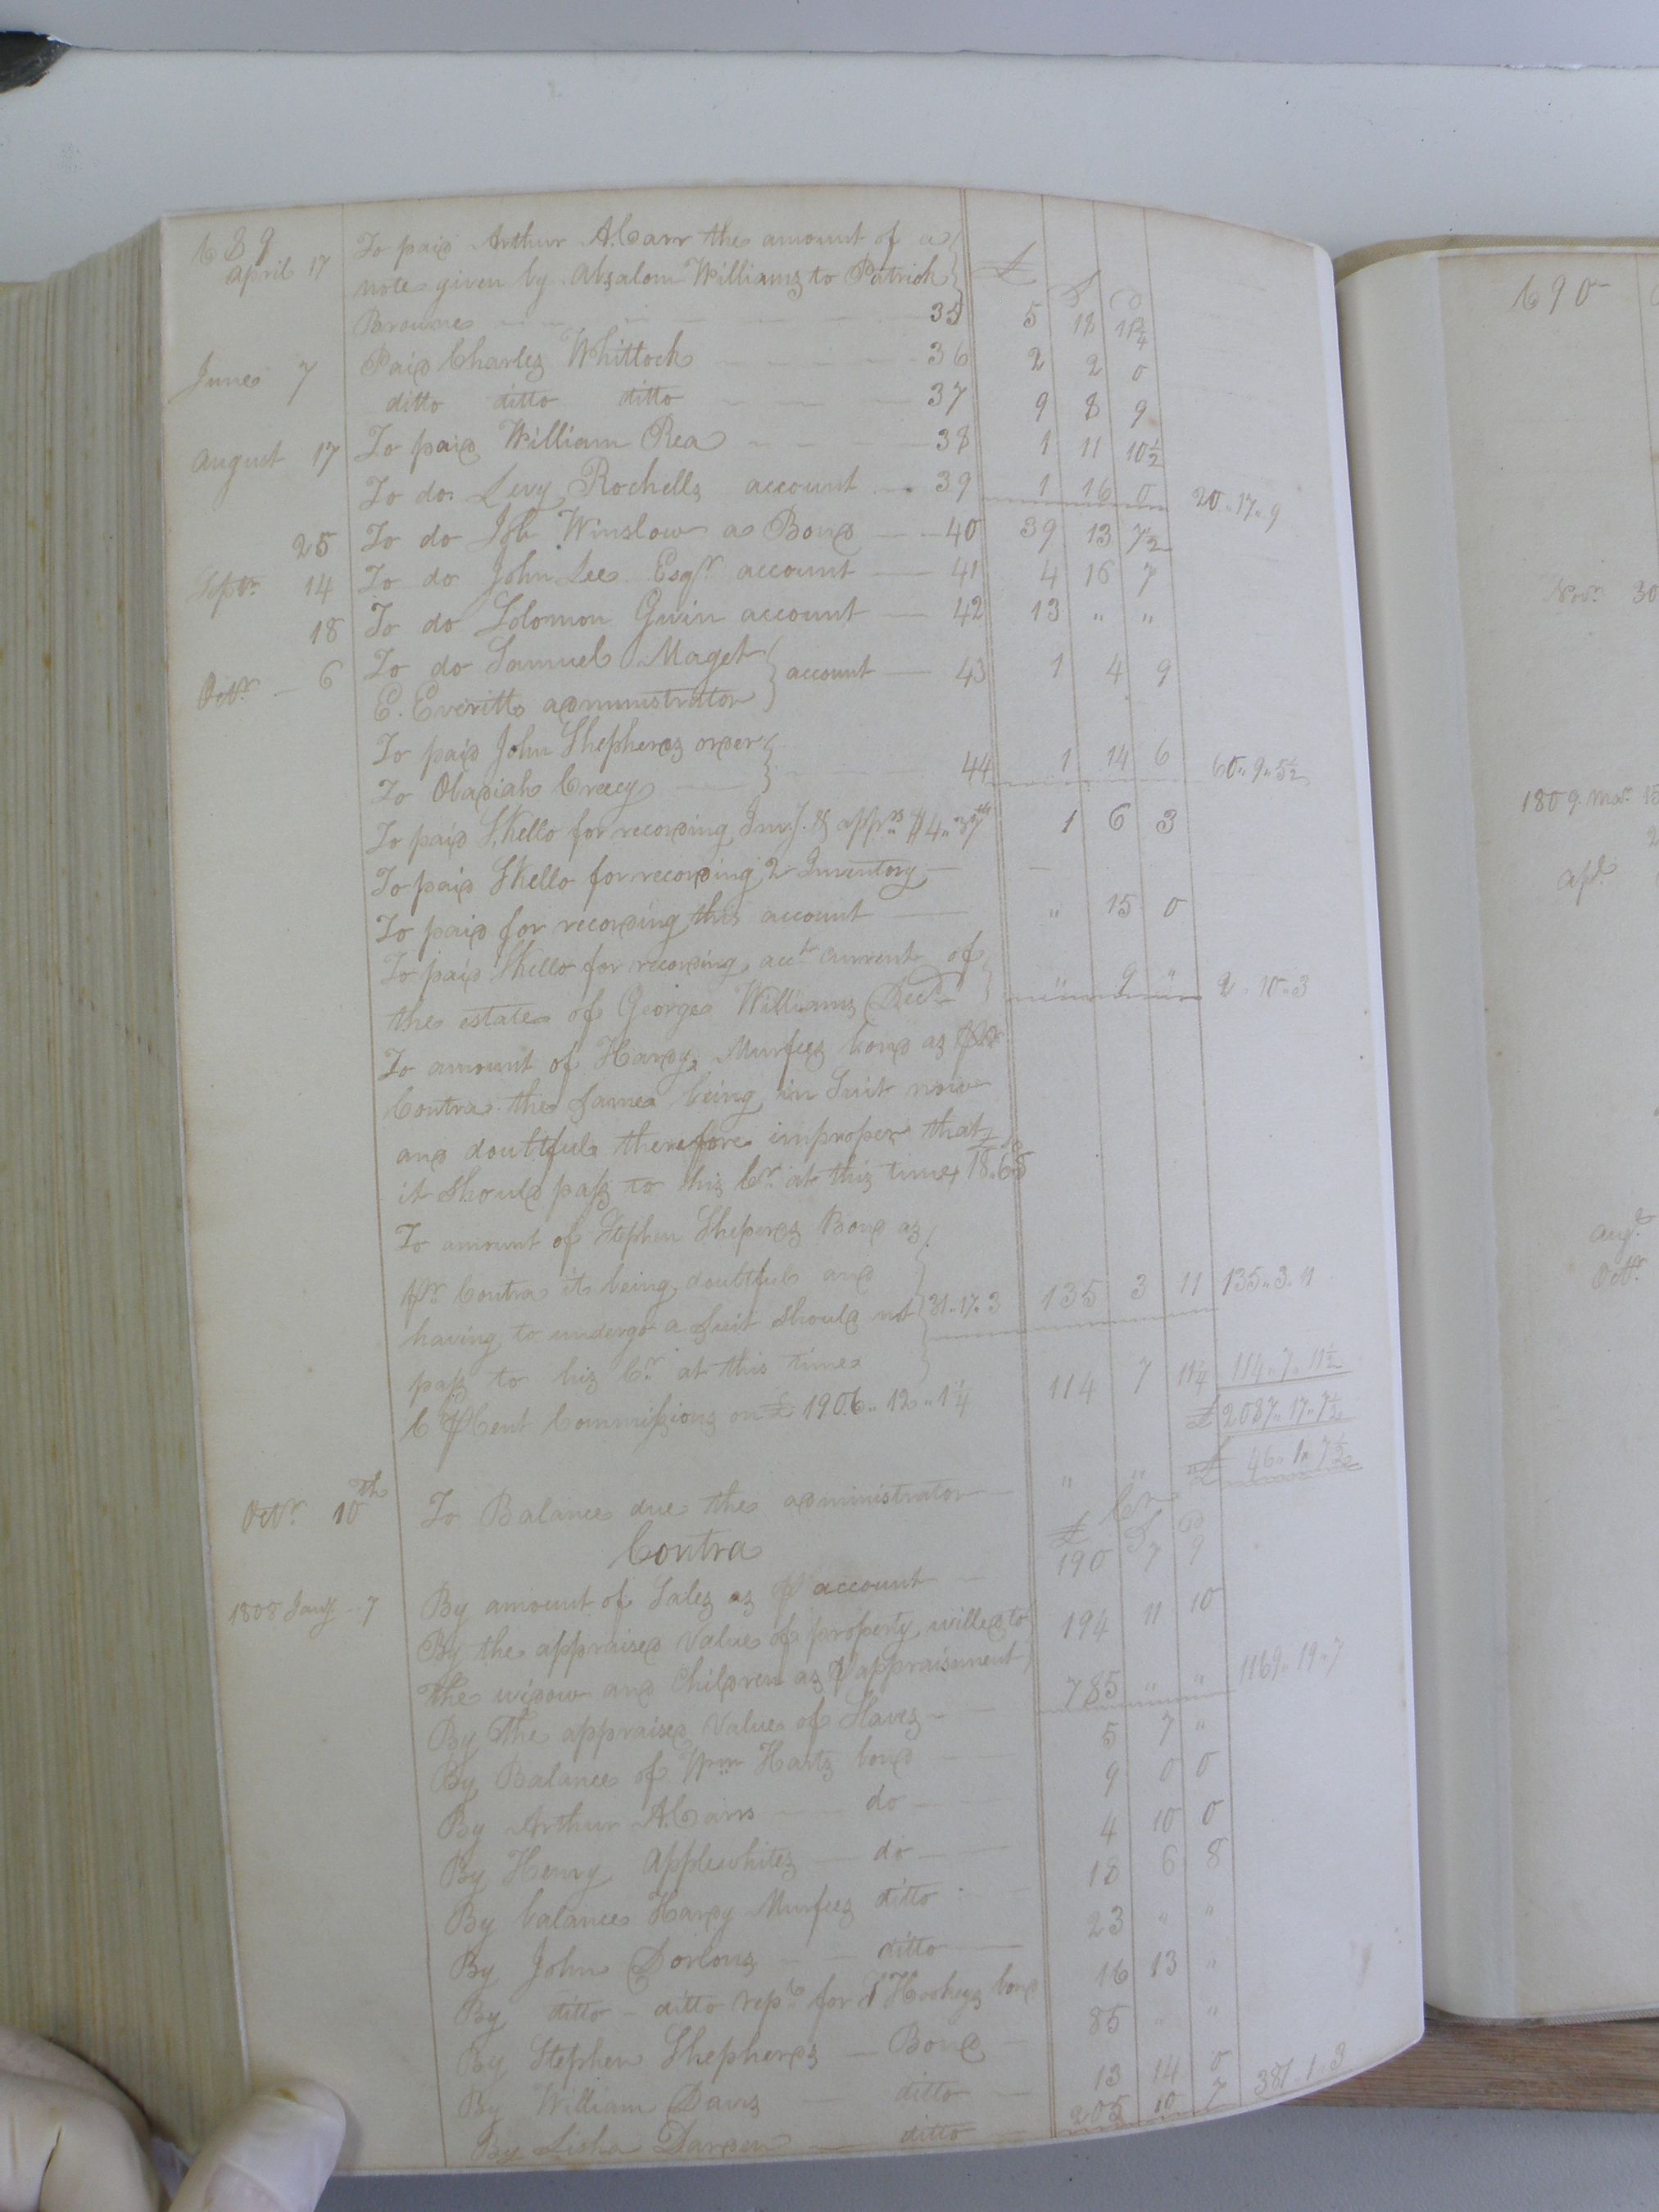 689
£ S D
April 17 To paid Arthur A. Carr the amount of a
note given by Absalom Williams to Patrick
Browne 35 5 18 1¼
June 7 Paid Charles Whitlock 36 2 2 0
ditto ditto ditto 37 9 8 9
August 17 To paid William Rea 38 1 11 10½
To do. Levy Rochells account 39 1 16 0 20..17..9
25 To do Winslow a Bond 40 39 13 7½
Septr. 14 To do John Lee Esqr. account 41 4 16 7
18 To do Solomon Gwin account 42 13 " "
Octr. 6 To do Samuel Maget
E. Everitts administrator account 43 1 4 9
To paid John Shepherds order
To Obadiah Creecy 44 1 14 6 60..9..5½
To paid S. Kello for recording Invy. & apprs. $4..37 1 6 3
To paid SKello for recording 2 Inventory
To paid for recording this account " 15 0
To paid SKello for recording acct. current of
the estate of George Williams Decd. " 9 " 2..10..3
To amount of Hardy Murfees bond as Pr
Contra the same being in Suit now
and doubtful therefore improper that
it should pass to his Cr. at this time 18..6..8
To amount of Stephen Sheperds Bond as
Pr Contra it being doubtful and
having to undergo a Suit should not 31..17..3 135 3 11 135..3..11
pass to his Cr. at this time
6 P Cent Commissions on £1906..12..1¼ 114 7 11¼ 114..7..11½
£ 2087..17..7½
Octr. 10th To Balance due the administrator " " £ 46..1..7½
Contra Cr.
£ S D
1808 Jany. 7 By amount of Sales as P account 190 7 9
By the appraised Value of property willed to
the widow and Children as P appraisment 194 11 10
By the appraised Value of Slaves 785 " " 1169..19..7
By Balance of Wm Harts bond 5 7 "
By Arthur A. Carrs do 9 0 0
By Henry Applewhites do 4 10 0
By balance Hardy Murfees ditto 18 6 8
By John Dorlons ditto 23 " "
By ditto ditto for Hookeys bond 16 13 "
By Stephen Shepherds Bond 85 " "
By William Davis ditto 13 14 0
By Lisha Darden ditto 205 10 7 381..1..3
690
Novr. 30
1809. Mar. 15
Apl.
Augt.
Octr.